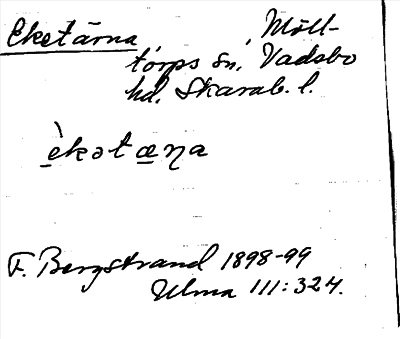 Eketärna Möll-
torps sn, Vadsbo
hd. Skarab. l.
èkətæɳa
F. Bergstrand 1898-99
Ulma 111:324.